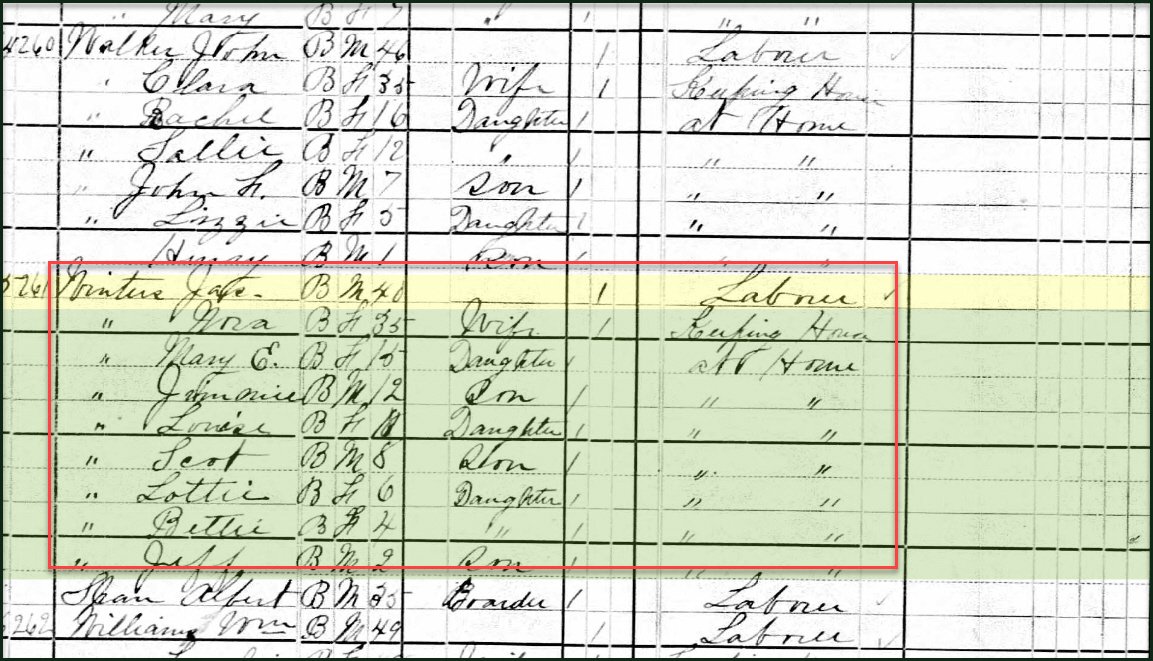 " Mary B F 7 " 1 " "
4260 Walker John B M 46 1 Labourer
" Clara B F 35 Wife 1 Keeping House
" Rachel B F 16 Daughter 1 at Home
" Sallie B F 12 " 1 " "
" John H. B M 7 Son 1 " "
" Lizzie B F 5 Daughter 1 " "
Henry B M 1 Son 1 " "
261 Winters Jas. B M 40 1 Labourer
" Nora B F 35 Wife 1 Keeping House
" Mary E. B F 15 Daughter 1 at Home
" Jimmie B M 12 Son 1 " "
" Louise B F Daughter 1 " "
" Scot B M 8 Son 1 " "
" Lottie B F 6 Daughter 1 " "
" Bettie B F 4 " 1 " "
" Jeff B M 2 Son 1 " "
Albert B M 35 Boarder 1 Labourer
262 Williams Wm B M 49 1 Labourer